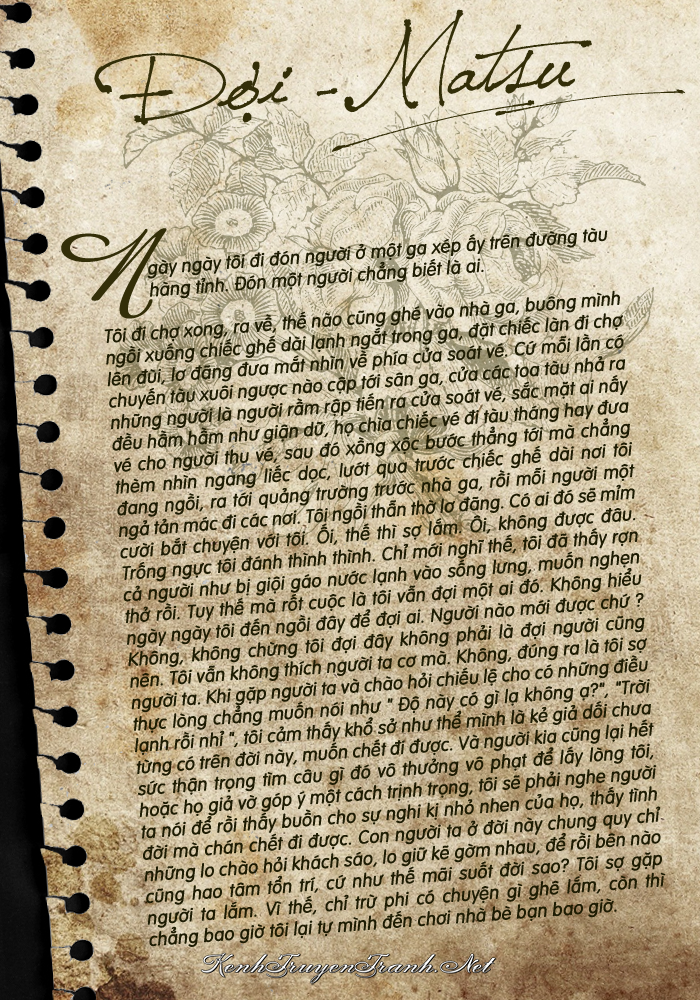 Đợi - Matsu
Ngày ngày tôi đi đón người ở một ga xép ấy trên đường tàu
hãng tỉnh. Đón một người chẳng biết là ai.
Tôi đi chợ xong, ra về, thế nào cũng ghé vào nhà ga, buông mình
ngồi xuống chiếc ghế dài lạnh ngắt trong ga, đặt chiếc làn đi chợ
lên đùi, lơ đãng đưa mắt nhìn về phía cửa soát vé. Cứ mỗi lần có
chuyến tàu xuôi ngược nào cập tới sân ga, cửa các toa tàu nhả ra
những người là người rầm rập tiến ra cửa soát vé, sắc mặt ai nấy
đều hầm hầm như giận dữ, họ chìa chiếc vé đi tàu tháng hay đưa
vé cho người thu vé, sau đó xồng xộc bước thẳng tới mà chẳng
thèm nhìn ngang liếc dọc, lướt qua trước chiếc ghế dài nơi tôi
đang ngồi, ra tới quảng trường trước nhà ga, rồi mỗi người một
ngả tản mác đi các nơi. Tôi ngồi thẫn thờ lơ đãng. Có ai đó sẽ mỉm
cười bắt chuyện với tôi. Ối, thế thì sợ lắm. Ôi, không được đâu.
Trống ngực tôi đánh thình thình. Chỉ mới nghĩ thế, tôi đã thấy rợn
cả người như bị giội gáo nước lạnh vào sống lưng, muốn nghẹn
thở rồi. Tuy thế mà rốt cuộc là tôi vẫn đợi một ai đó. Không hiểu
ngày ngày tôi đến ngồi đây để đợi ai. Người nào mới được chứ ?
Không, không chừng tôi đợi đây không phải là đợi người cũng
nên. Tôi vẫn không thích người ta cơ mà. Không, đúng ra là tôi sợ
người ta. Khi gặp người ta và chào hỏi chiếu lệ cho có những điều
thực lòng chẳng muốn nói như " Độ này có gì lạ không ạ?", "Trời
lạnh rồi nhỉ ", tôi cảm thấy khổ sở như thể mình là kẻ giả dối chưa
từng có trên đời này, muốn chết đi được. Và người kia cũng lại hết
sức thận trọng tìm câu gì đó vô thưởng vô phạt để lấy lòng tôi,
hoặc họ giả vờ góp ý một cách trịnh trọng, tôi sẽ phải nghe người
ta nói để rồi thấy buồn cho sự nghi kị nhỏ nhen của họ, thấy tình
đời mà chán chết đi được. Con người ta ở đời này chung quy chỉ
những lo chào hỏi khách sáo, lo giữ kẽ gờm nhau, để rồi bên nào
cũng hao tâm tổn trí, cứ như thế mãi suốt đời sao? Tôi sợ gặp
người ta lắm. Vì thế, chỉ trừ phi có chuyện gì ghê lắm, còn thì
chẳng bao giờ tôi lại tự mình đến chơi nhà bè bạn bao giờ.
KenhTruyenTranh.Net